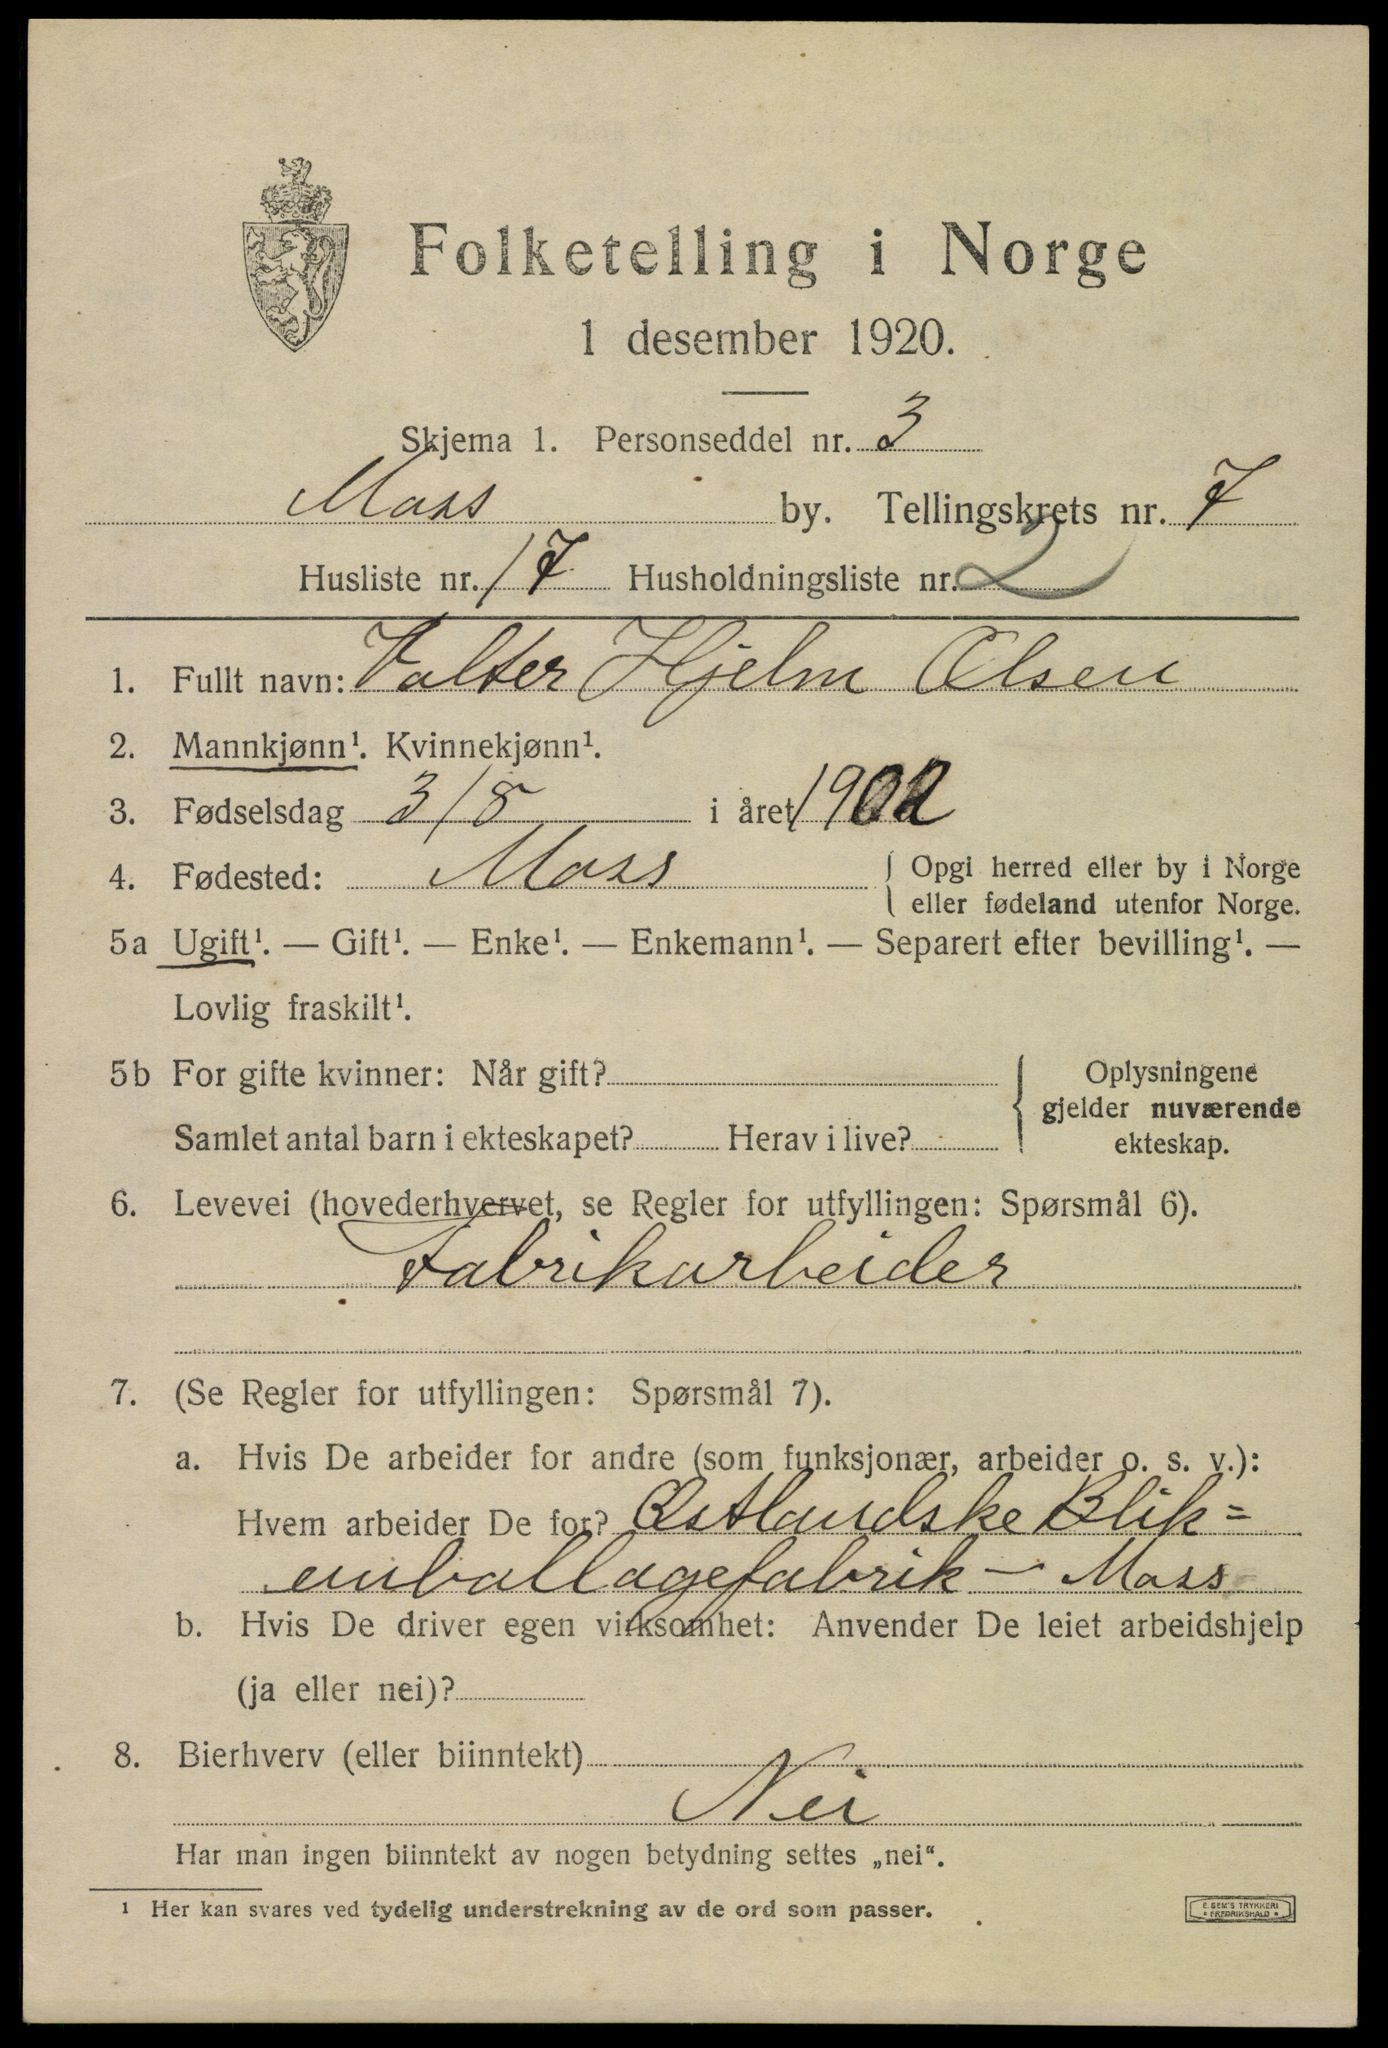 Folketelling i Norge
1 desember 1920.
Skjema 1. Personseddel nr. 3
Moss by. Tellingskrets nr. 7
Husliste nr. 17 Husholdningsliste nr. 2
1. Fullt navn: Valter Hjelm Olsen
2. Mannkjønn¹. Kvinnekjønn¹.
3. Fødselsdag 3/8 i året 1902
4. Fødested: Moss { Opgi herred eller by i Norge
eller fødeland utenfor Norge.
5a Ugift¹. — Gift¹. — Enke¹. — Enkemann¹. — Separert efter bevilling¹. —
Lovlig fraskilt¹.
5b For gifte kvinner: Når gift? { Oplysningene
gjelder nuværende
Samlet antal barn i ekteskapet? Herav i live? ekteskap.
6. Levevei (hovederhvervet, se Regler for utfyllingen: Spørsmål 6).
Fabrikarbeider
7. (Se Regler for utfyllingen: Spørsmål 7).
a. Hvis De arbeider for andre (som funksjonær, arbeider o. s. v.):
Hvem arbeider De for? Østlandske Blik=
emballagefabrik — Moss
b. Hvis De driver egen virksomhet: Anvender De leiet arbeidshjelp
(ja eller nei)?
8. Bierhverv (eller biinntekt)
Nei
Har man ingen biinntekt av nogen betydning settes „nei“.
¹ Her kan svares ved tydelig understrekning av de ord som passer.
E. SEM'S TRYKKERI
* FREDRIKSHALD *